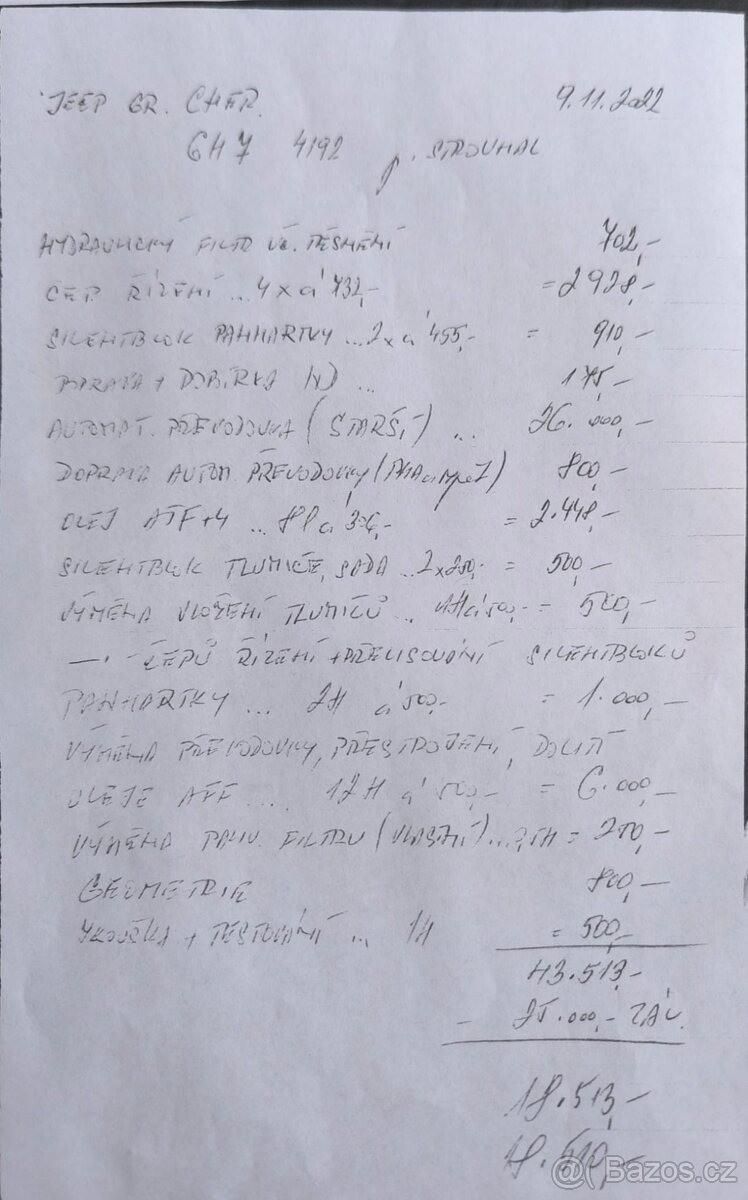 JEEP GR. CHER. 9.11.2022
6H7 4192 p. STROUHAL
HYDRAULICKÝ FILTR VČ. TĚSNĚNÍ 702,-
ČEP ŘÍZENÍ ... 4x á 732,- = 2928,-
SILENTBLOK PANHARTKY ... 2x á 455,- = 910,-
DOPRAVA + DOBÍRKA ND ... 175,-
AUTOMAT. PŘEVODOVKA (STARŠÍ) ... 26.000,-
DOPRAVA AUTOM. PŘEVODOVKY 800,-
OLEJ ATF+4 ... 8l á 306,- = 2.448,-
SILENTBLOK TLUMIČE, SADA .. 2x250,- = 500,-
VÝMĚNA ULOŽENÍ TLUMIČŮ .. 1H á 500,- = 500,-
— " — ČEPŮ ŘÍZENÍ + PŘELISOVÁNÍ SILENTBLOKŮ
PANHARTKY ... 2H á 500,- = 1.000,-
VÝMĚNA PŘEVODOVKY, PŘESTROJENÍ, DOLITÍ
OLEJE ATF .... 12H á 500,- = 6.000,-
VÝMĚNA PALIV. FILTRU (VLASTNÍ) ... = 250,-
GEOMETRIE 800,-
ZKOUŠKA + TESTOVÁNÍ ... 1H = 500,-
43.513,-
- 25.000,- ZÁL.
18.513,-
18.510,-
@ Bazos.cz